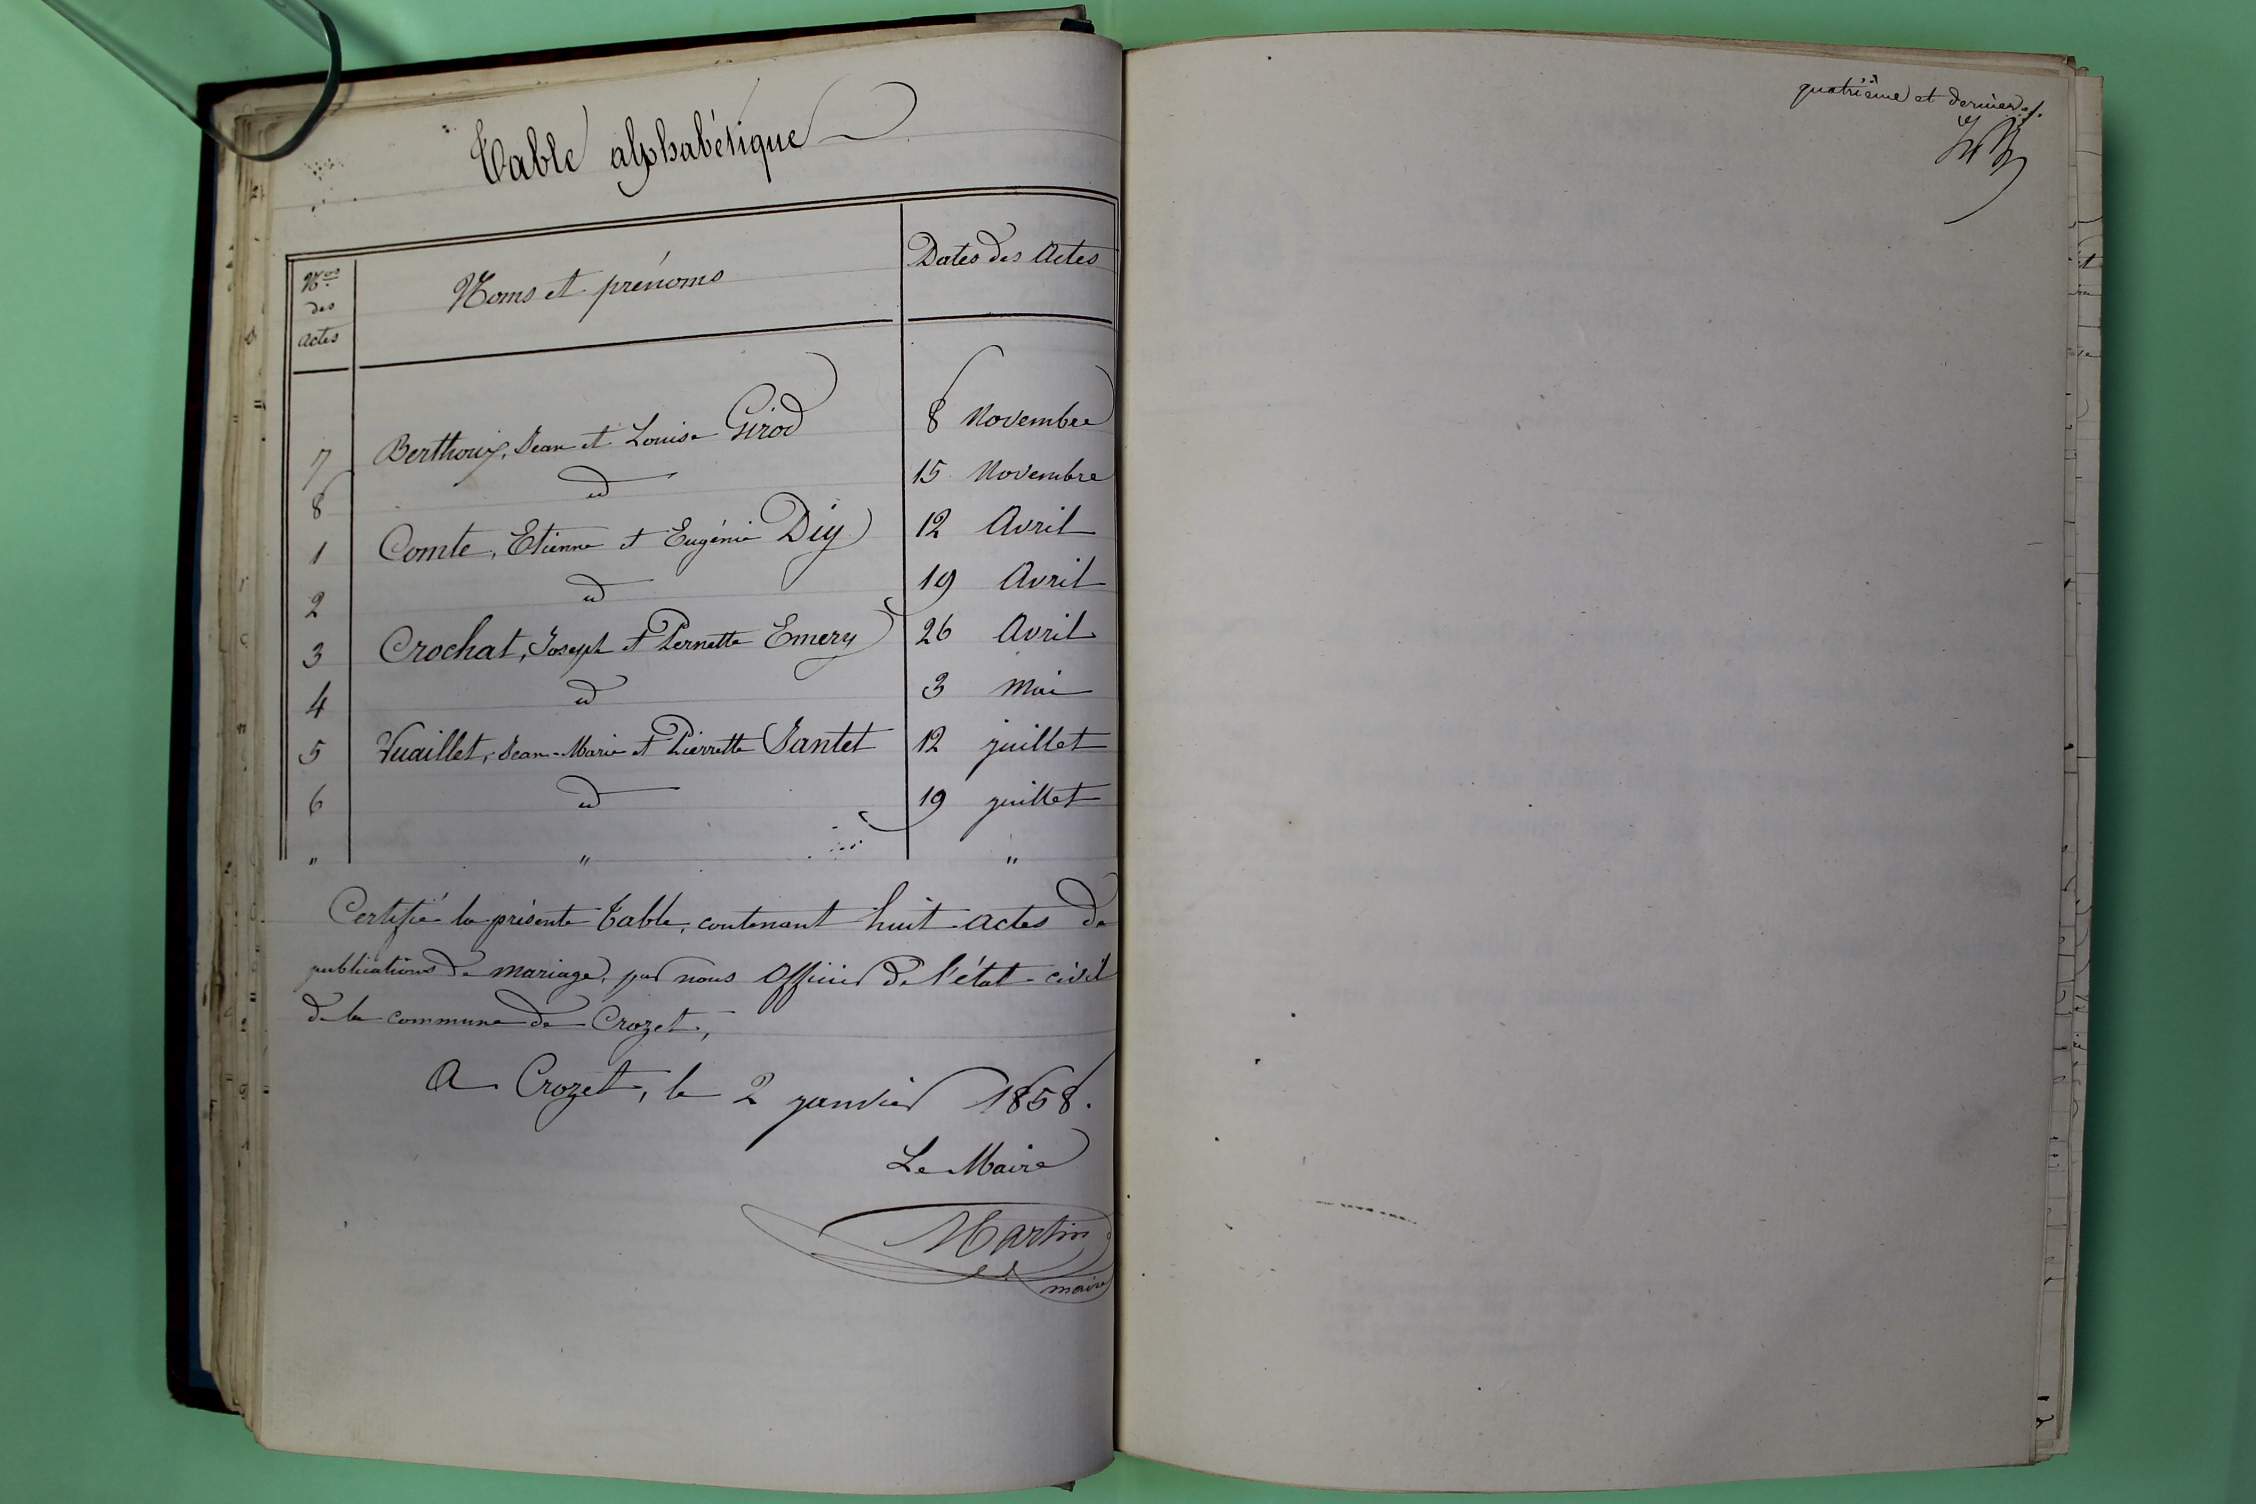 Table alphabétique
Nos des actes | Noms et prénoms | Dates des Actes
7 | Berthoux, Jean et Louise Girod | 8 Novembre
8 | id | 15 Novembre
1 | Comte, Etienne et Eugénie Diy | 12 Avril
2 | id | 19 Avril
3 | Crochat, Joseph et Pernette Emery | 26 Avril
4 | id | 3 Mai
5 | Vuaillet, Jean-Marie et Pierrette Jantet | 12 juillet
6 | id | 19 juillet
" | " | "
Certifié la présente Table, contenant huit actes de
publications de mariage, par nous Officier de l'état-civil
de la commune de Crozet,
A Crozet, le 2 janvier 1858.
Le Maire
Martin
maire
quatrième et dernier f.